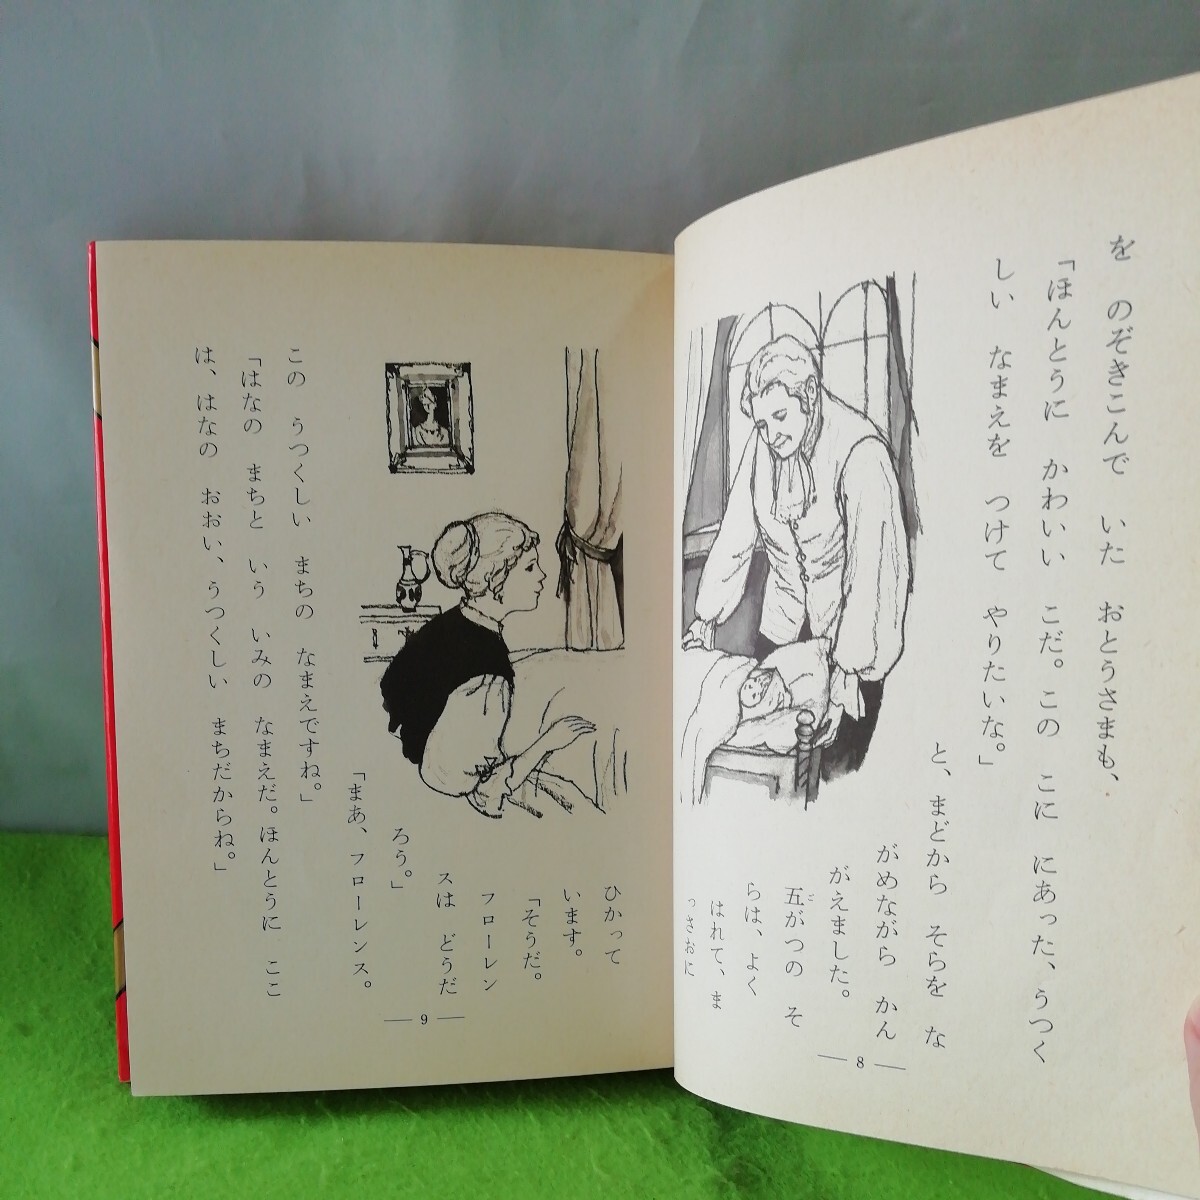 を　のぞきこんで　いた　おとうさまも、
「ほんとうに　かわいい　こだ。この　こに　にあった、うつく
しい　なまえを　つけて　やりたいな。」
と、まどから　そらを　な
がめながら　かん
がえました。
五がつの　そ
ご
らは、よく
はれて、ま
っさおに
8
ひかって
います。
「そうだ。
フローレン
スは　どうだ
ろう。」
「まあ、フローレンス。
この　うつくしい　まちの　なまえですね。」
「はなの　まちと　いう　いみの　なまえだ。ほんとうに　ここ
は、はなの　おおい、うつくしい　まちだからね。」
9